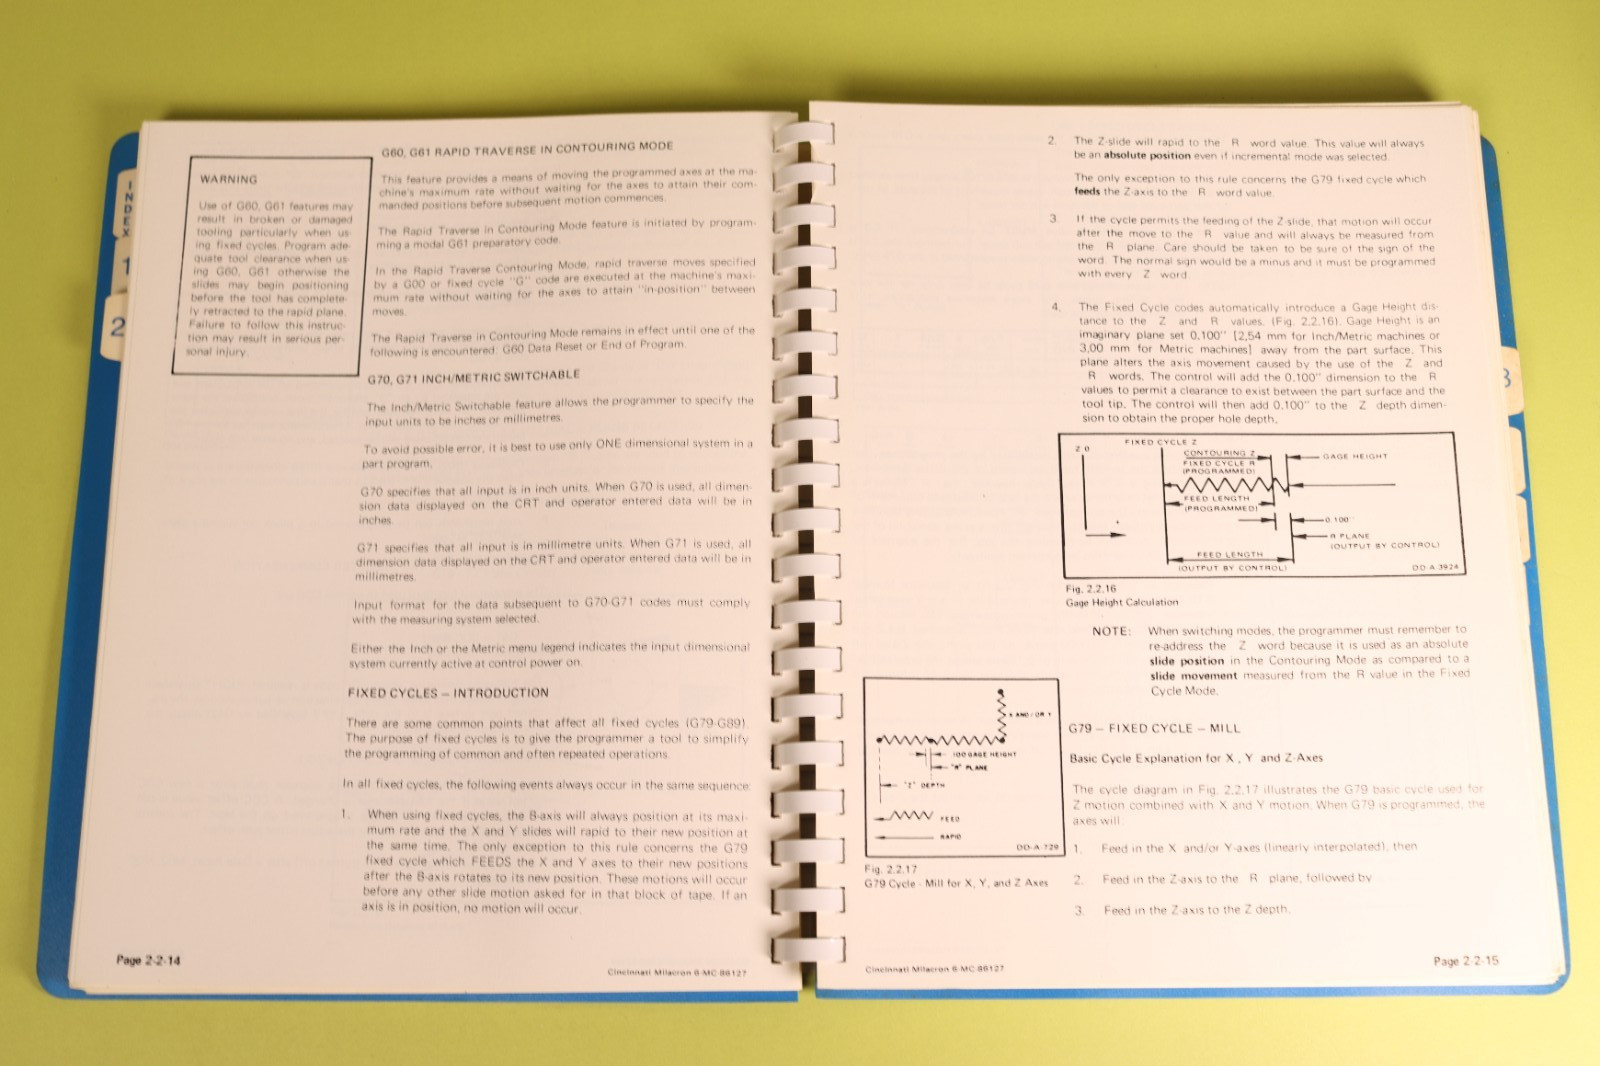 INDEX
1
2
WARNING
Use of G60, G61 features may
result in broken or damaged
tooling particularly when us-
ing fixed cycles. Program ade-
quate tool clearance when us-
ing G60, G61 otherwise the
slides may begin positioning
before the tool has complete-
ly retracted to the rapid plane.
Failure to follow this instruc-
tion may result in serious per-
sonal injury.
G60, G61 RAPID TRAVERSE IN CONTOURING MODE
This feature provides a means of moving the programmed axes at the ma-
chine's maximum rate without waiting for the axes to attain their com-
manded positions before subsequent motion commences.
The Rapid Traverse in Contouring Mode feature is initiated by program-
ming a modal G61 preparatory code.
In the Rapid Traverse Contouring Mode, rapid traverse moves specified
by a G00 or fixed cycle "G" code are executed at the machine's maxi-
mum rate without waiting for the axes to attain "in-position" between
moves.
The Rapid Traverse in Contouring Mode remains in effect until one of the
following is encountered: G60 Data Reset or End of Program.
G70, G71 INCH/METRIC SWITCHABLE
The Inch/Metric Switchable feature allows the programmer to specify the
input units to be inches or millimetres.
To avoid possible error, it is best to use only ONE dimensional system in a
part program.
G70 specifies that all input is in inch units. When G70 is used, all dimen-
sion data displayed on the CRT and operator entered data will be in
inches.
G71 specifies that all input is in millimetre units. When G71 is used, all
dimension data displayed on the CRT and operator entered data will be in
millimetres.
Input format for the data subsequent to G70-G71 codes must comply
with the measuring system selected.
Either the Inch or the Metric menu legend indicates the input dimensional
system currently active at control power on.
FIXED CYCLES – INTRODUCTION
There are some common points that affect all fixed cycles (G79-G89).
The purpose of fixed cycles is to give the programmer a tool to simplify
the programming of common and often repeated operations.
In all fixed cycles, the following events always occur in the same sequence
1. When using fixed cycles, the B-axis will always position at its maxi-
mum rate and the X and Y slides will rapid to their new position at
the same time. The only exception to this rule concerns the G79
fixed cycle which FEEDS the X and Y axes to their new positions
after the B-axis rotates to its new position. These motions will occur
before any other slide motion asked for in that block of tape. If an
axis is in position, no motion will occur.
Page 2-2-14
Cincinnati Milacron 6-MC-86127
2. The Z-slide will rapid to the R word value. This value will always
be an absolute position even if incremental mode was selected.
The only exception to this rule concerns the G79 fixed cycle which
feeds the Z-axis to the R word value.
3. If the cycle permits the feeding of the Z-slide, that motion will occur
after the move to the R value and will always be measured from
the R plane. Care should be taken to be sure of the sign of the
word. The normal sign would be a minus and it must be programmed
with every Z word.
4. The Fixed Cycle codes automatically introduce a Gage Height dis-
tance to the Z and R values. (Fig. 2.2.16). Gage Height is an
imaginary plane set 0.100" [2,54 mm for Inch/Metric machines or
3,00 mm for Metric machines] away from the part surface. This
plane alters the axis movement caused by the use of the Z and
R words. The control will add the 0.100" dimension to the R
values to permit a clearance to exist between the part surface and the
tool tip. The control will then add 0.100" to the Z depth dimen-
sion to obtain the proper hole depth.
Z 0
FIXED CYCLE Z
CONTOURING Z
FIXED CYCLE R
(PROGRAMMED)
GAGE HEIGHT
FEED LENGTH
(PROGRAMMED)
0.100
R PLANE
(OUTPUT BY CONTROL)
FEED LENGTH
(OUTPUT BY CONTROL)
OD-A-3924
Fig. 2.2.16
Gage Height Calculation
NOTE: When switching modes, the programmer must remember to
re-address the Z word because it is used as an absolute
slide position in the Contouring Mode as compared to a
slide movement measured from the R value in the Fixed
Cycle Mode.
X AND/OR Y
.100 GAGE HEIGHT
"R" PLANE
"Z" DEPTH
FEED
RAPID
OD-A-729
Fig. 2.2.17
G79 Cycle - Mill for X, Y, and Z Axes
G79 – FIXED CYCLE – MILL
Basic Cycle Explanation for X, Y and Z-Axes
The cycle diagram in Fig. 2.2.17 illustrates the G79 basic cycle used for
Z motion combined with X and Y motion. When G79 is programmed, the
axes will
1. Feed in the X and/or Y-axes (linearly interpolated), then
2. Feed in the Z-axis to the R plane, followed by
3. Feed in the Z-axis to the Z depth.
Cincinnati Milacron 6-MC-86127
Page 2-2-15
3